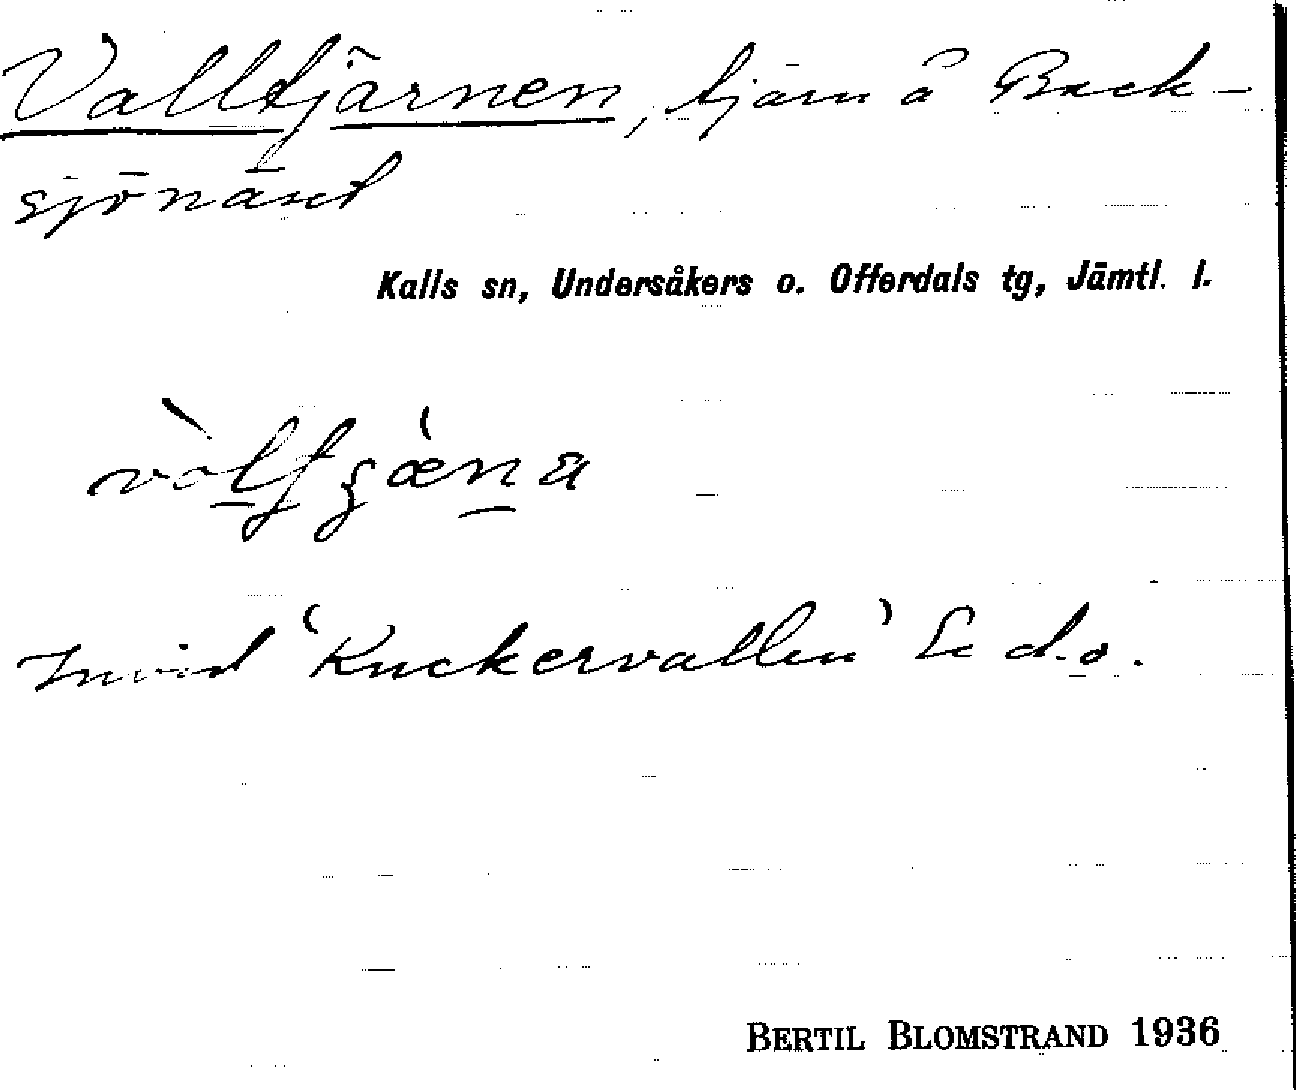 Valltjärnen, tjärn å Back-
sjönäset
Kalls sn, Undersåkers o. Offerdals tg, Jämtl. l.
Invid 'Kuckervallen' Se d.o.
BERTIL BLOMSTRAND 1936